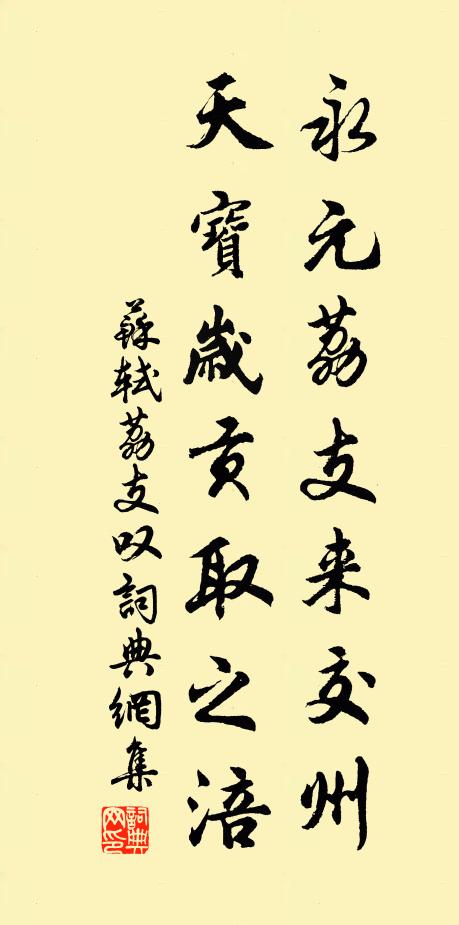 永元荔支来交州
天寶歲貢取之涪
蘇軾荔支叹詞典網集
詞典網印